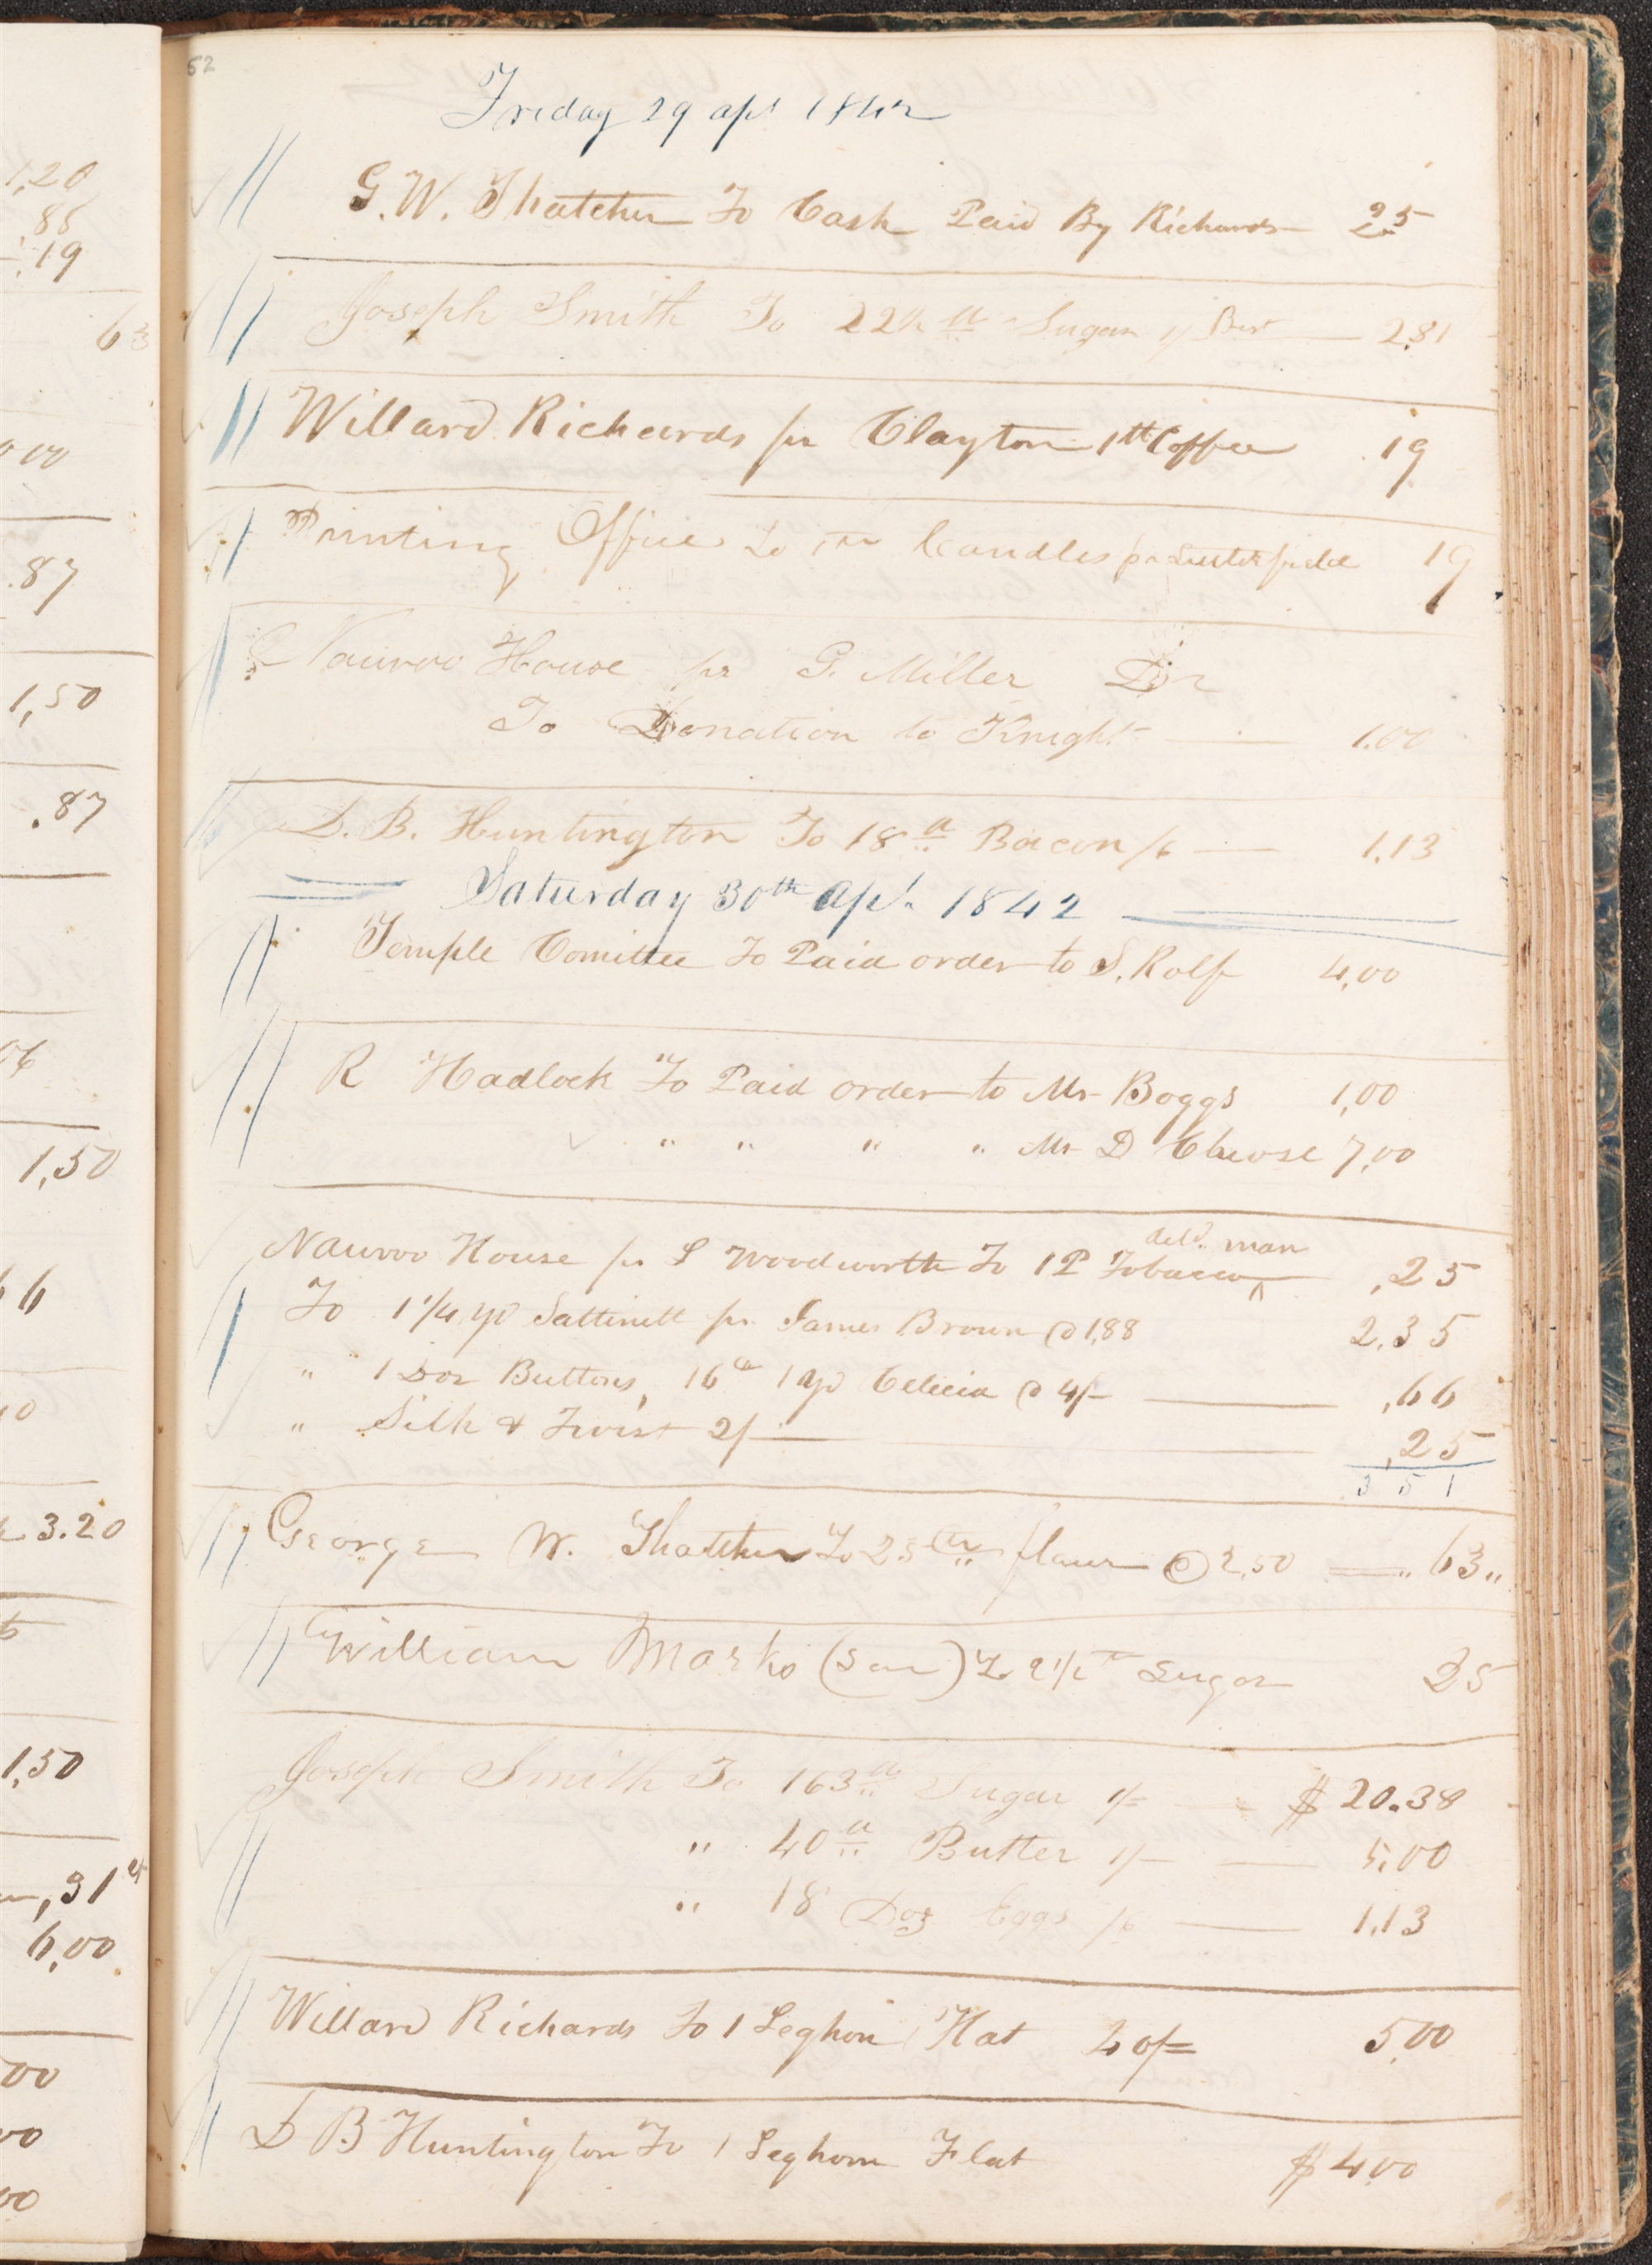 1,20
.85
.19
63
0 00
.87
1,50
.87
06
1,50
66
10
3.20
1,50
,31
6,00
00
00
00
52
Friday 29 apl 1842
G. W. Thatcher To Cash Paid By Richards 25
Joseph Smith To 22½ ℔ Sugar 1/ Best 2.81
Willard Richards pr Clayton 1 ℔ Coffee .19
Printing Office to 1 ℔ Candles pr 19
Nauvoo House pr G. Miller Dr
To Donation to Knight 1.00
D. B. Huntington To 18 ℔ Bacon /6 1.13
Saturday 30th Apl. 1842
Temple Comittee To Paid order to S. Rolfe 4,00
R Hadlock To Paid order to Mr Boggs 1,00
" " " " Mr D Chease 7,00
deld. man
Nauvoo House pr S Woodworth To 1 P Tobacco ^ ,25
To 1 1/4 yd Sattinett pr James Brown @ 1,88 2.35
" 1 Doz Buttons, 16 c 1 yd Celicia @ 4/- ,66
" Silk & Twist 2/- ,25
3 51
George W. Thatcher To 25 ℔ flour @ 2,50 " 63 "
William Marks (Son) To 2 1/2 ℔ Sugar 25
Joseph Smith To 163 ℔ Sugar 1/- $ 20.38
" 40 ℔ Butter 1/- 5,00
" 18 Doz Eggs /6 1.13
Willard Richards To 1 Leghorn Hat 40/- 5,00
D B Huntington To 1 Leghorn Flat $ 4,00